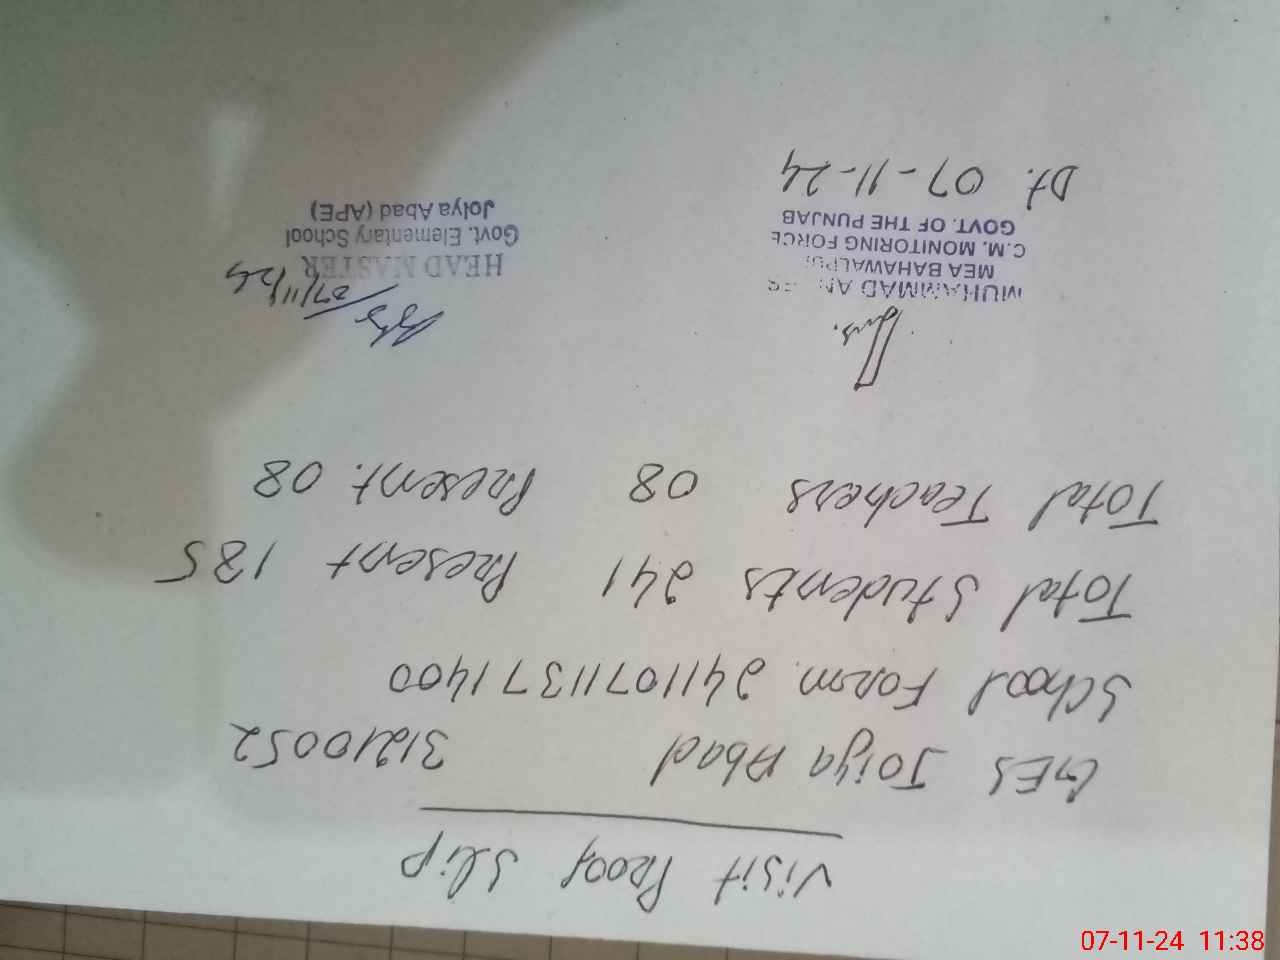 Visit Proof Slip
GES Joiya Abad 31210052
School Form. 2411071137 1400
Total Students 241 Present 185
Total Teachers 08 Present. 08
MUHAMMAD
MEA BAHAWALPUR
C.M. MONITORING FORCE
GOVT. OF THE PUNJAB
Dt. 07-11-24
07/11/24
HEAD MASTER
Govt. Elementary School
Joiya Abad (APE)
07-11-24 11:38